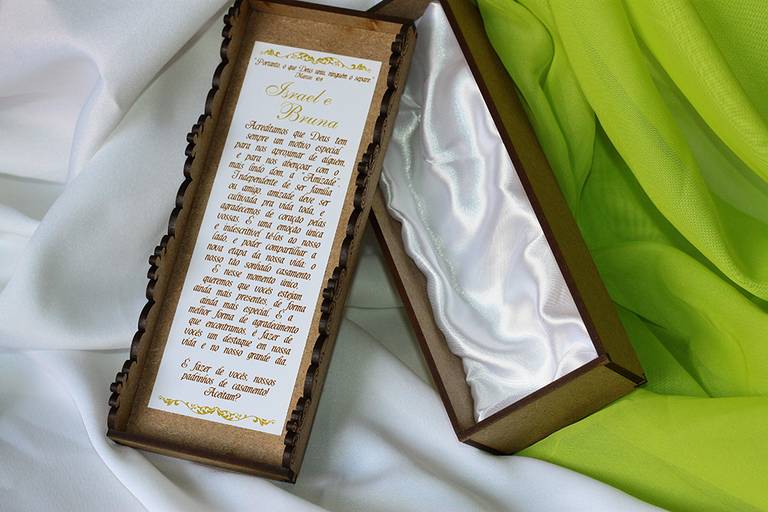 "Portanto, o que Deus uniu, ninguém o separe"
Israel e
Bruna
Acreditamos que Deus tem
sempre um motivo especial
para nos aproximar de alguém,
e para nos abençoar com o
mais lindo dom, a "Amizade".
Independente de ser família
ou amigo, amizade deve ser
cultivada pra vida toda, e
agradecemos de coração pelas
vossas. É uma emoção única
e indescritível tê-los ao nosso
lado, e poder compartilhar a
nova etapa da nossa vida: o
nosso tão sonhado casamento.
E nesse momento único,
queremos que vocês estejam
ainda mais presentes, de forma
ainda mais especial. E a
melhor forma de agradecimento
que encontramos, é fazer de
vocês um destaque em nossa
vida e no nosso grande dia.
E fazer de vocês, nossos
padrinhos de casamento!
Aceitam?